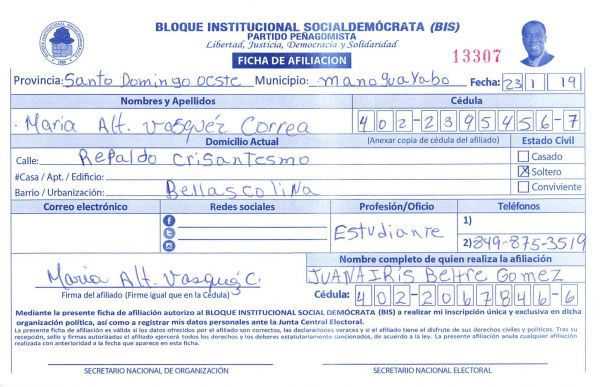 BLOQUE INSTITUCIONAL SOCIALDEMÓCRATA (BIS)
PARTIDO PEÑAGOMISTA
Libertad, Justicia, Democracia y Solidaridad
FICHA DE AFILIACION
13307
Provincia: Santo Domingo oeste Municipio: manoguayabo Fecha: 23 1 19
Nombres y Apellidos Cédula
Maria Alt. Vasquéz Correa 402-2395456-7
Domicilio Actual (Anexar copia de cédula del afiliado) Estado Civil
Calle: Repaldo crisantesmo Casado
#Casa / Apt. / Edificio: Soltero
Barrio / Urbanización: Bellascolina Conviviente
Correo electrónico Redes sociales Profesión/Oficio Teléfonos
1)
Estudiante 2) 849-875-3519
Nombre completo de quien realiza la afiliación
Maria Alt. Vasquéz C. JUANAIRis Beltre Gomez
Firma del afiliado (Firme igual que en la Cédula) Cédula: 402-2067846-6
Mediante la presente ficha de afiliación autorizo al BLOQUE INSTITUCIONAL SOCIAL DEMÓCRATA (BIS) a realizar mi inscripción única y exclusiva en dicha
organización política, así como a registrar mis datos personales ante la Junta Central Electoral.
La presente ficha de afiliación será válida si los datos ofrecidos por el afiliado son correctos, las declaraciones veraces y si el afiliado tiene el disfrute de sus derechos civiles y políticos. Tras su
recepción, sello y firmas autorizadas el afiliado ejercerá todos los derechos y los deberes estatutariamente sancionados, de acuerdo a la ley. La presente afiliación anula cualquier afiliación
realizada con anterioridad a la fecha que aparece en esta ficha.
SECRETARIO NACIONAL DE ORGANIZACIÓN SECRETARIO NACIONAL ELECTORAL